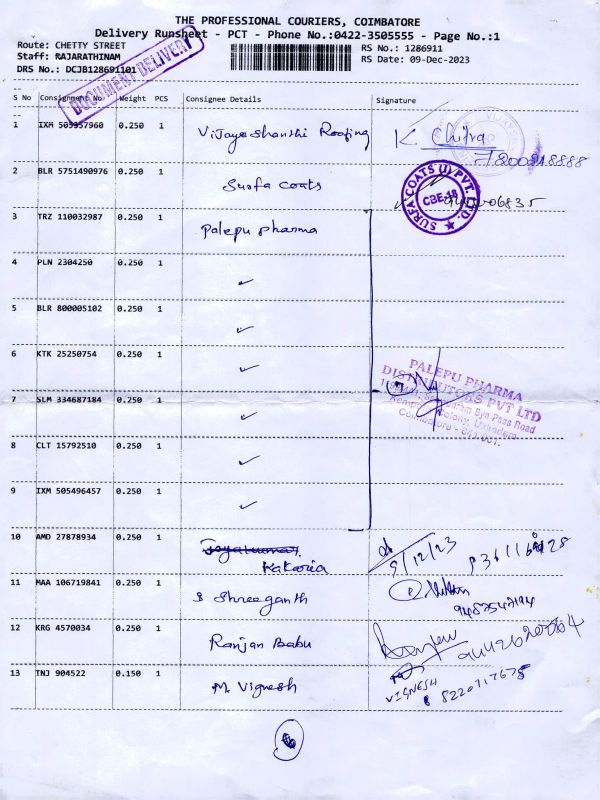 THE PROFESSIONAL COURIERS, COIMBATORE
Delivery Runsheet - PCT - Phone No.:0422-3505555 - Page No.:1
Route: CHETTY STREET
RS No.: 1286911
Staff: RAJARATHINAM
RS Date: 09-Dec-2023
DRS No.: DCJB128691101
DOCUMENT DELIVERY
S No Consignment No Weight PCS Consignee Details Signature
1 IXM 505957960 0.250 1 Vijaya shanthi Roofing Chitra
2 BLR 5751490976 0.250 1 Surfa coats
SURFA COATS (I) PVT. LTD. CBE-18
3 TRZ 110032987 0.250 1 Palepu pharma
4 PLN 2304250 0.250 1 ✓
5 BLR 800005102 0.250 1 ✓
6 KTK 25250754 0.250 1 ✓
PALEPU PHARMA
DISTRIBUTORS PVT LTD
7 SLM 334687184 0.250 1 ✓
Bye Pass Road
Colony
Coimbatore - 641 001.
8 CLT 15792510 0.250 1 ✓
9 IXM 505496457 0.250 1 ✓
10 AMD 27878934 0.250 1 Kataria 9/12/23
11 MAA 106719841 0.250 1 S Shreeganth
12 KRG 4570034 0.250 1 Ranjan Babu
13 TNJ 904522 0.150 1 M. Vignesh VIGNESH
8220717675